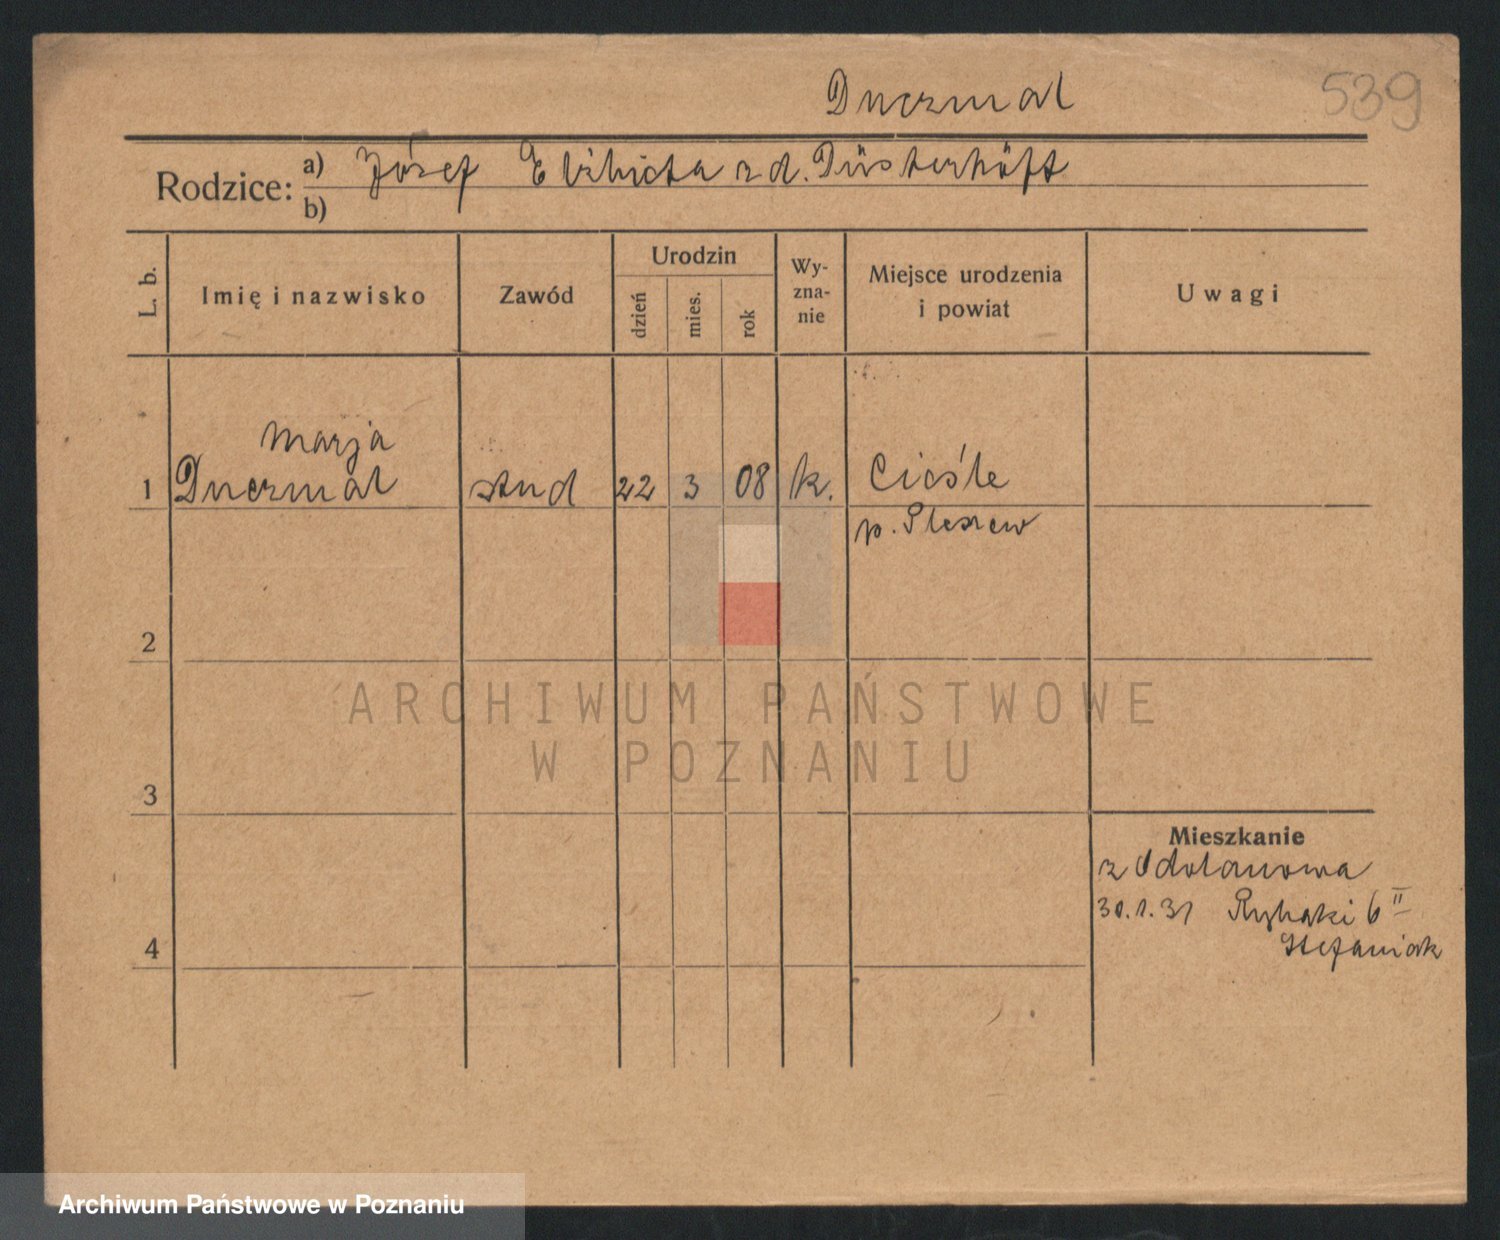 Duczmal
539
Rodzice:
a) Józef Elżbieta z d. Düsterhöft
b)
L. b.
Imię i nazwisko
Zawód
Urodzin
dzień
mies.
rok
Wy-
zna-
nie
Miejsce urodzenia
i powiat
Uwagi
Marja
1 Duczmal stud 22 3 08 k. Cieśle
p. Pleszew
2
ARCHIWUM PAŃSTWOWE
W POZNANIU
3
Mieszkanie
z Odolanowa
30.1.31 Rybaki 6 II
Stefaniak
4
Archiwum Państwowe w Poznaniu